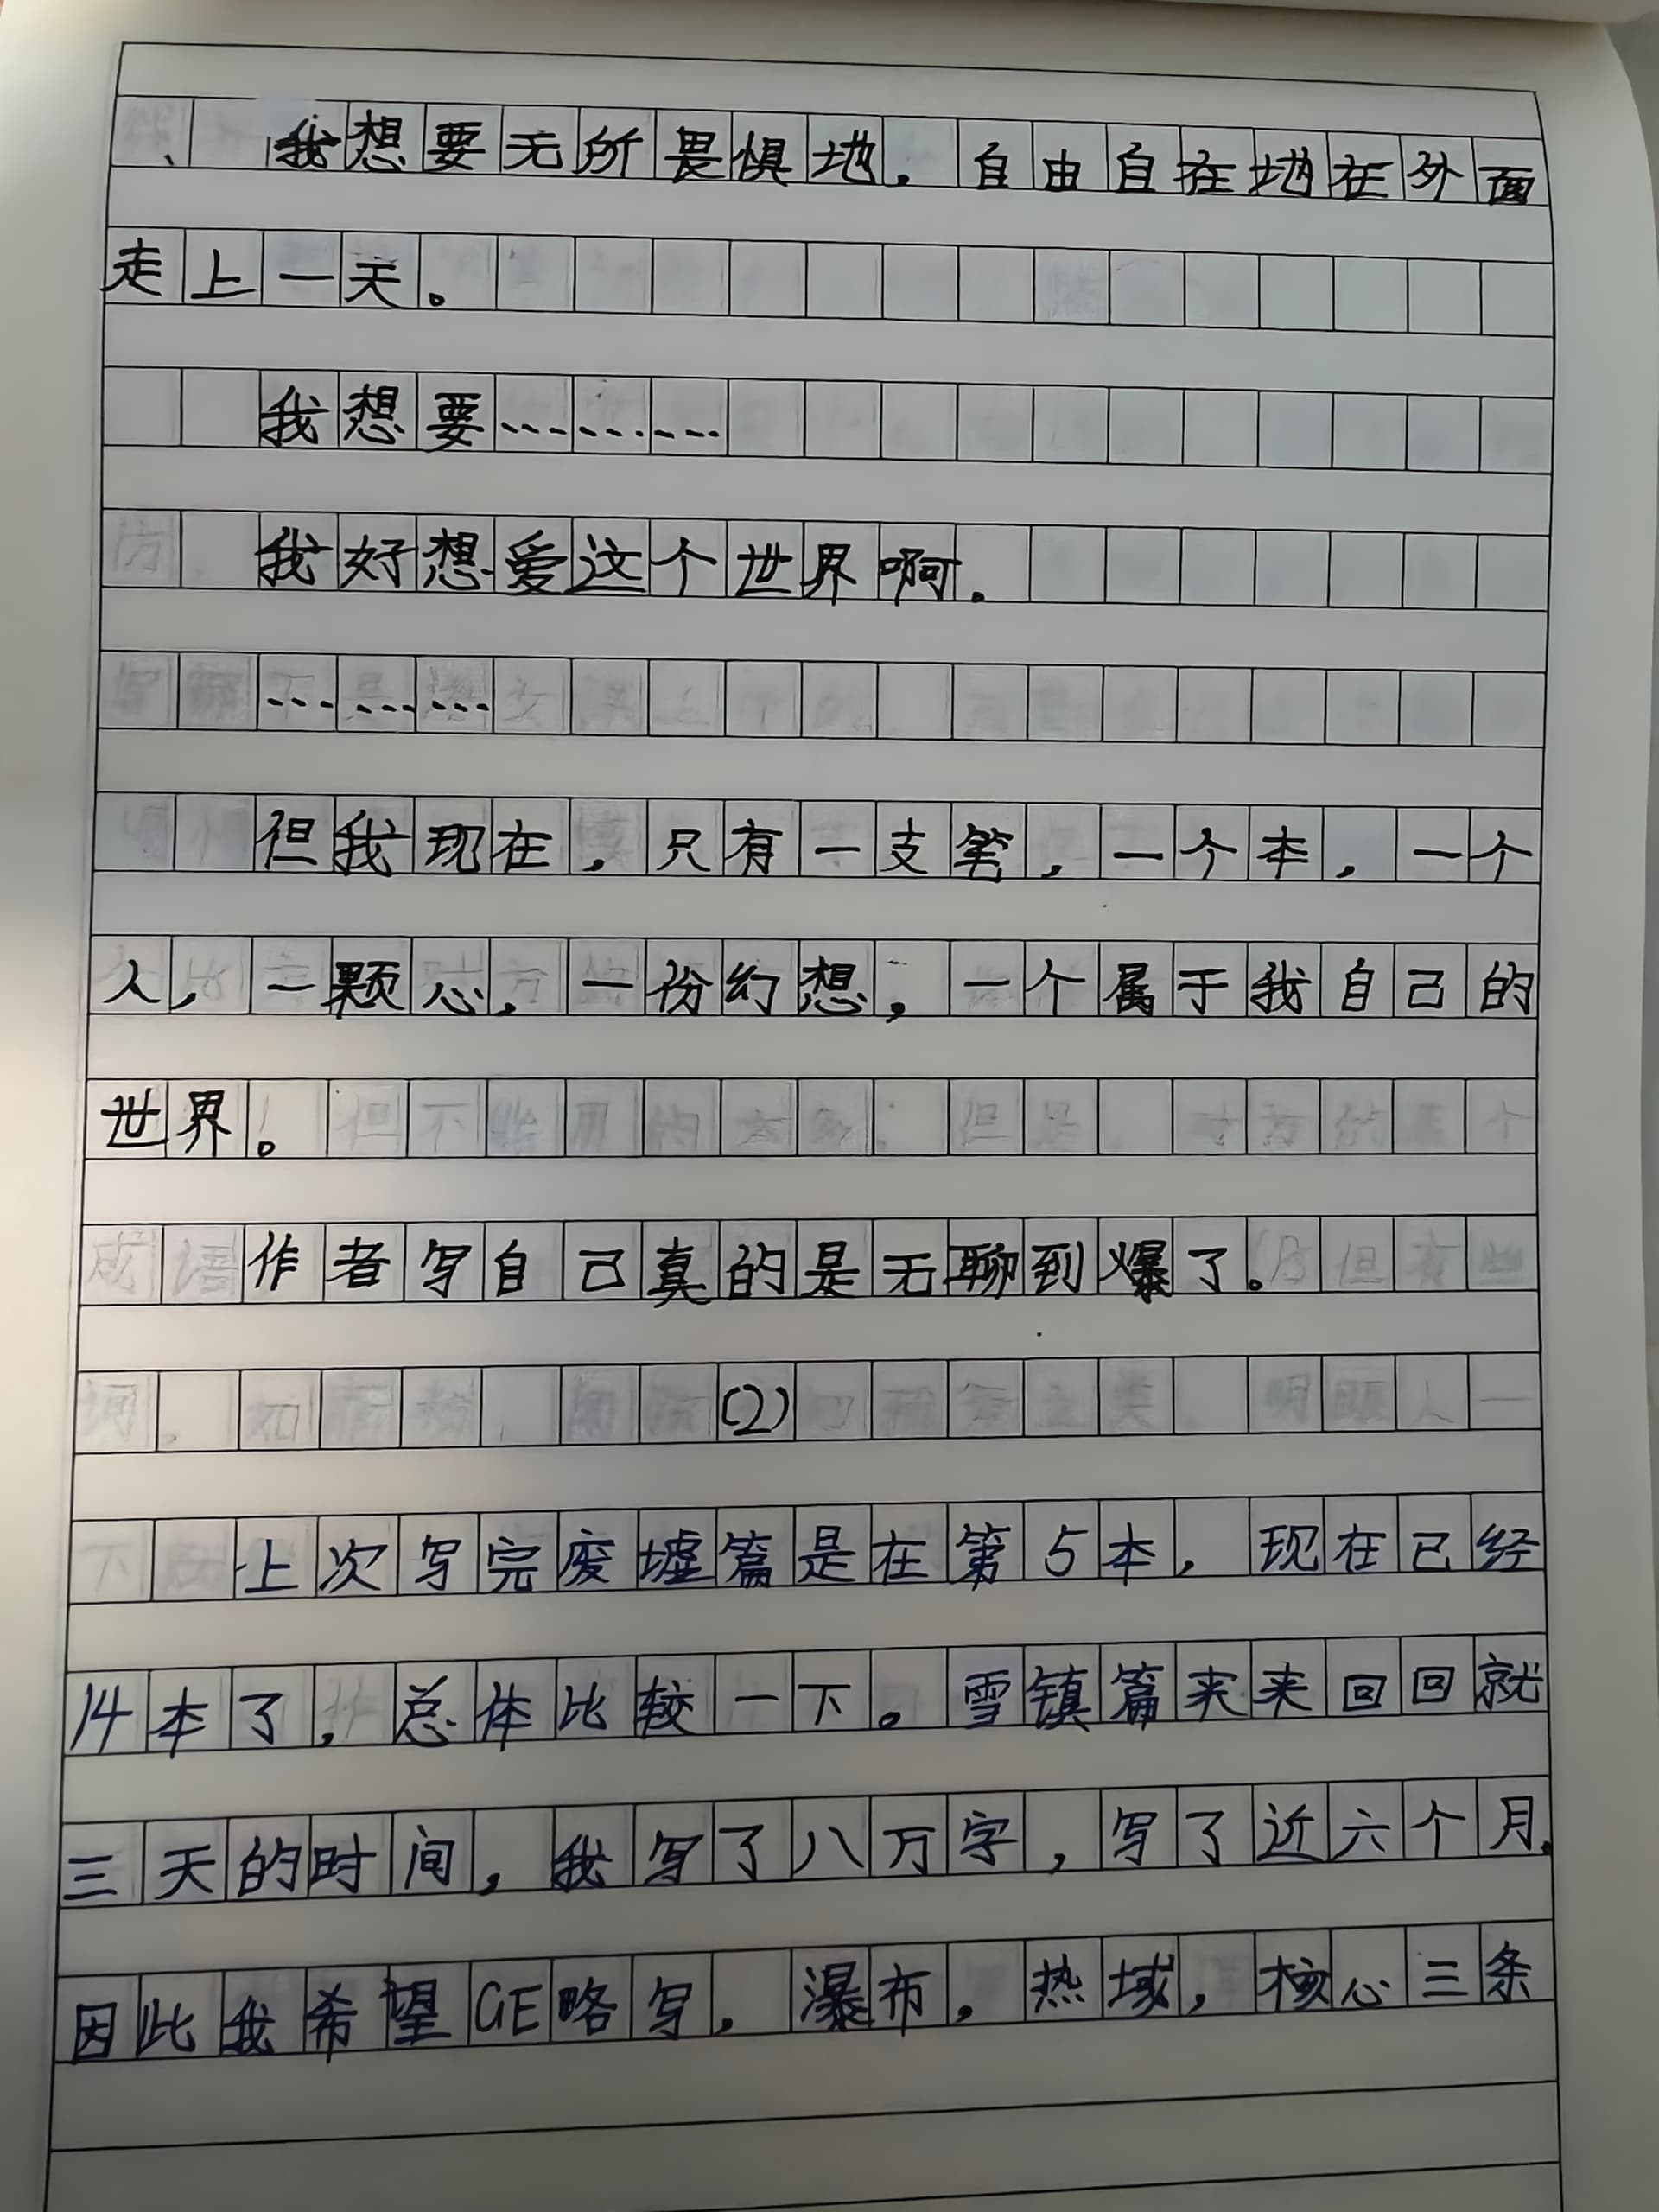 我想要无所畏惧地，自由自在地在外面
走上一天。
我想要………
我好想爱这个世界啊。
………
但我现在，只有一支笔，一个本，一个
人，一颗心，一份幻想，一个属于我自己的
世界。
作者写自己真的是无聊到爆了。
(2)
上次写完废墟篇是在第5本，现在已经
14本了，总体比较一下。雪镇篇来来回回就
三天的时间，我写了八万字，写了近六个月，
因此我希望GE略写，瀑布，热域，核心三条